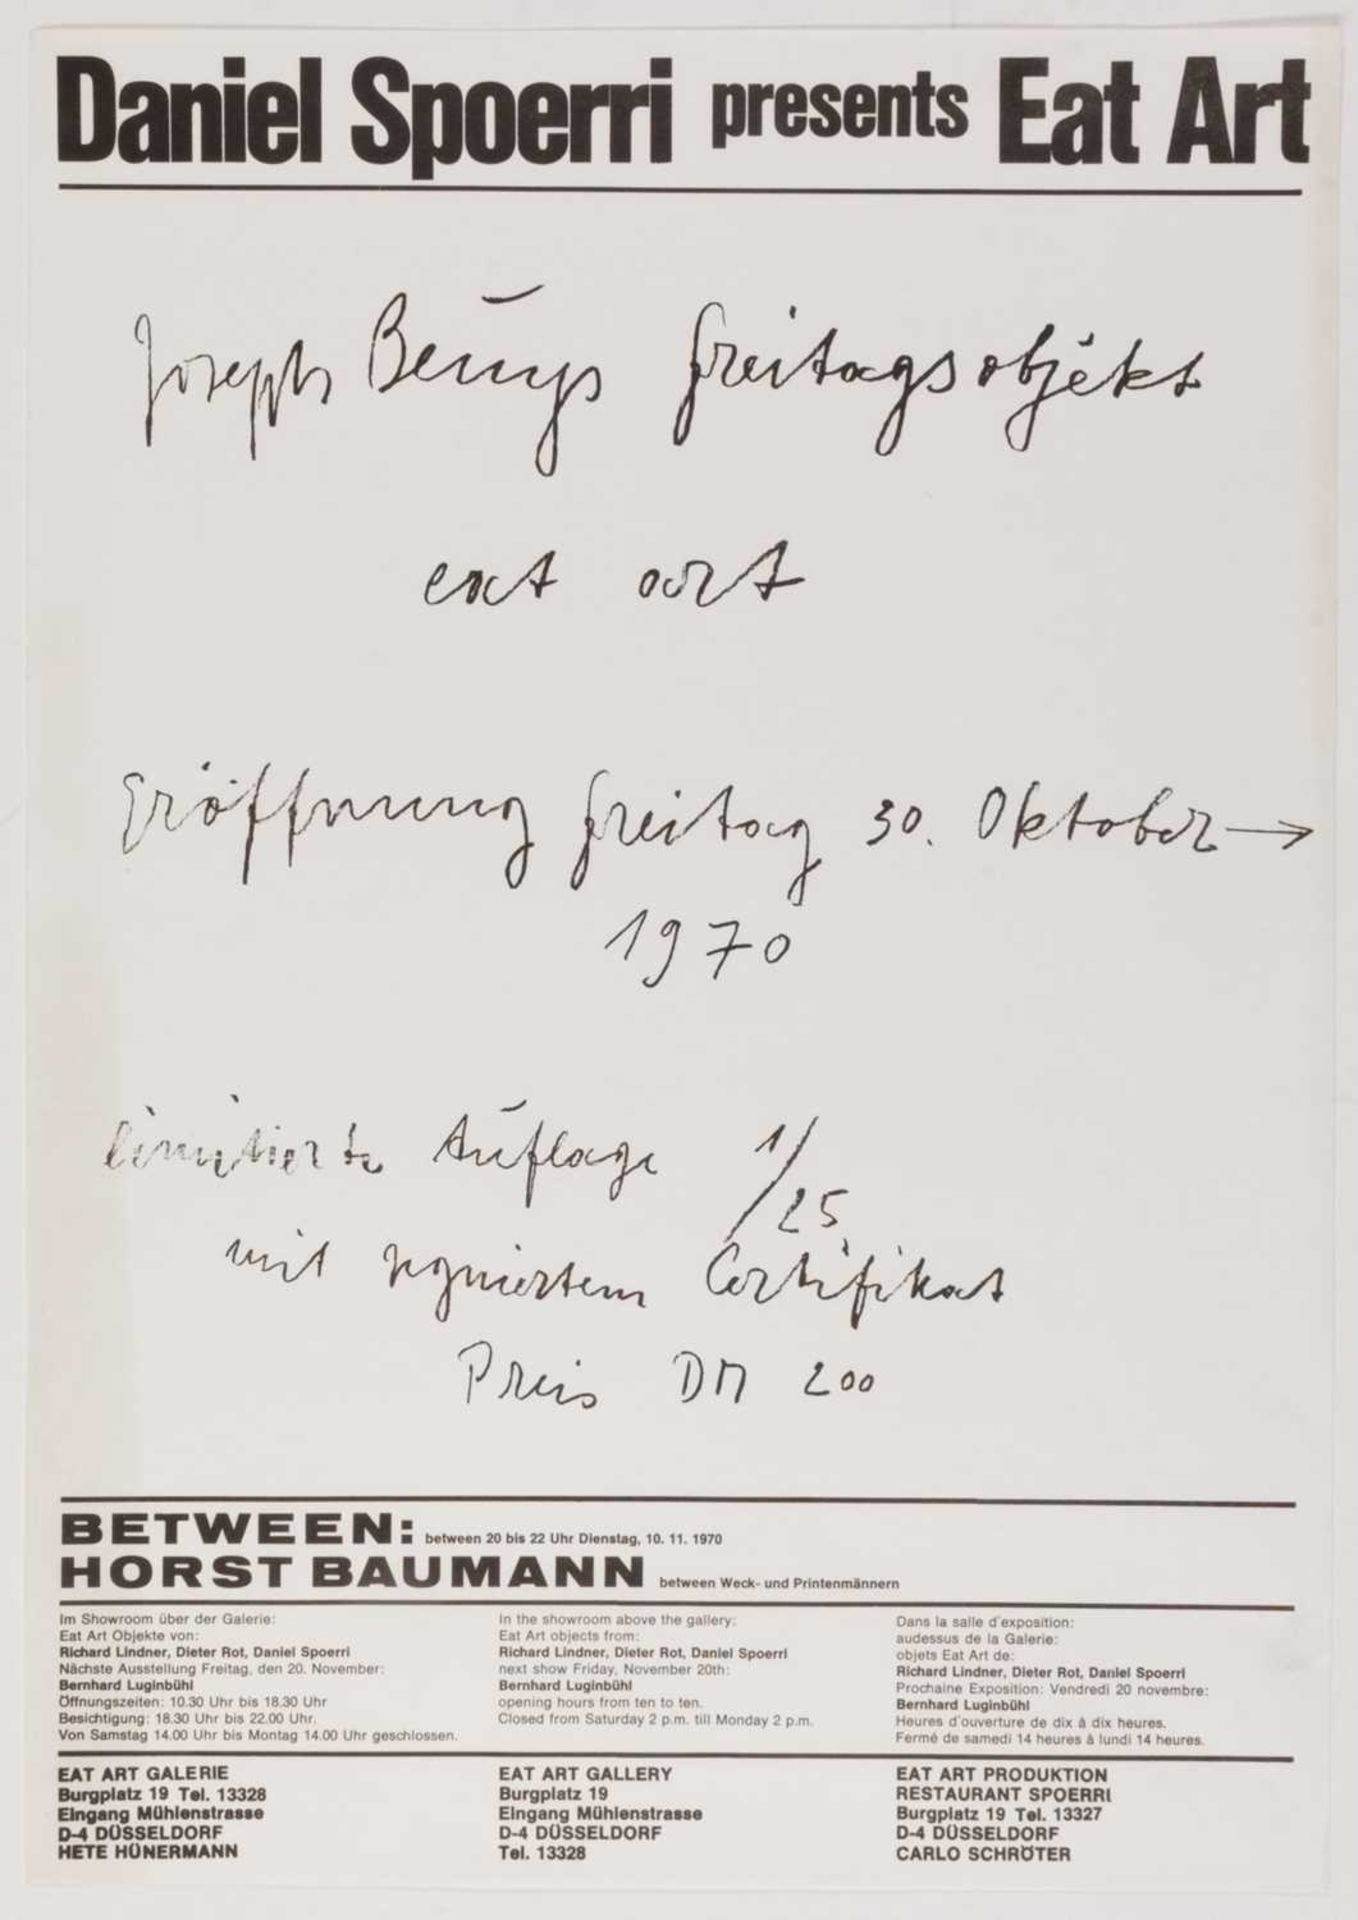 Daniel Spoerri presents Eat Art
Joseph Beuys Freitagsobjekt
eat art
Eröffnung Freitag 30. Oktober →
1970
limitierte Auflage 1/25
mit signiertem Certifikat
Preis DM 200
BETWEEN: between 20 bis 22 Uhr Dienstag, 10. 11. 1970
HORST BAUMANN between Weck- und Printenmännern
Im Showroom über der Galerie:
Eat Art Objekte von:
Richard Lindner, Dieter Rot, Daniel Spoerri
Nächste Ausstellung Freitag, den 20. November:
Bernhard Luginbühl
Öffnungszeiten: 10.30 Uhr bis 18.30 Uhr
Besichtigung: 18.30 Uhr bis 22.00 Uhr.
Von Samstag 14.00 Uhr bis Montag 14.00 Uhr geschlossen.
In the showroom above the gallery:
Eat Art objects from:
Richard Lindner, Dieter Rot, Daniel Spoerri
next show Friday, November 20th:
Bernhard Luginbühl
opening hours from ten to ten.
Closed from Saturday 2 p.m. till Monday 2 p.m.
Dans la salle d'exposition:
audessus de la Galerie:
objets Eat Art de:
Richard Lindner, Dieter Rot, Daniel Spoerri
Prochaine Exposition: Vendredi 20 novembre:
Bernhard Luginbühl
Heures d'ouverture de dix à dix heures.
Fermé de samedi 14 heures à lundi 14 heures.
EAT ART GALERIE
Burgplatz 19 Tel. 13328
Eingang Mühlenstrasse
D-4 DÜSSELDORF
HETE HÜNERMANN
EAT ART GALLERY
Burgplatz 19
Eingang Mühlenstrasse
D-4 DÜSSELDORF
Tel. 13328
EAT ART PRODUKTION
RESTAURANT SPOERRI
Burgplatz 19 Tel. 13327
D-4 DÜSSELDORF
CARLO SCHRÖTER